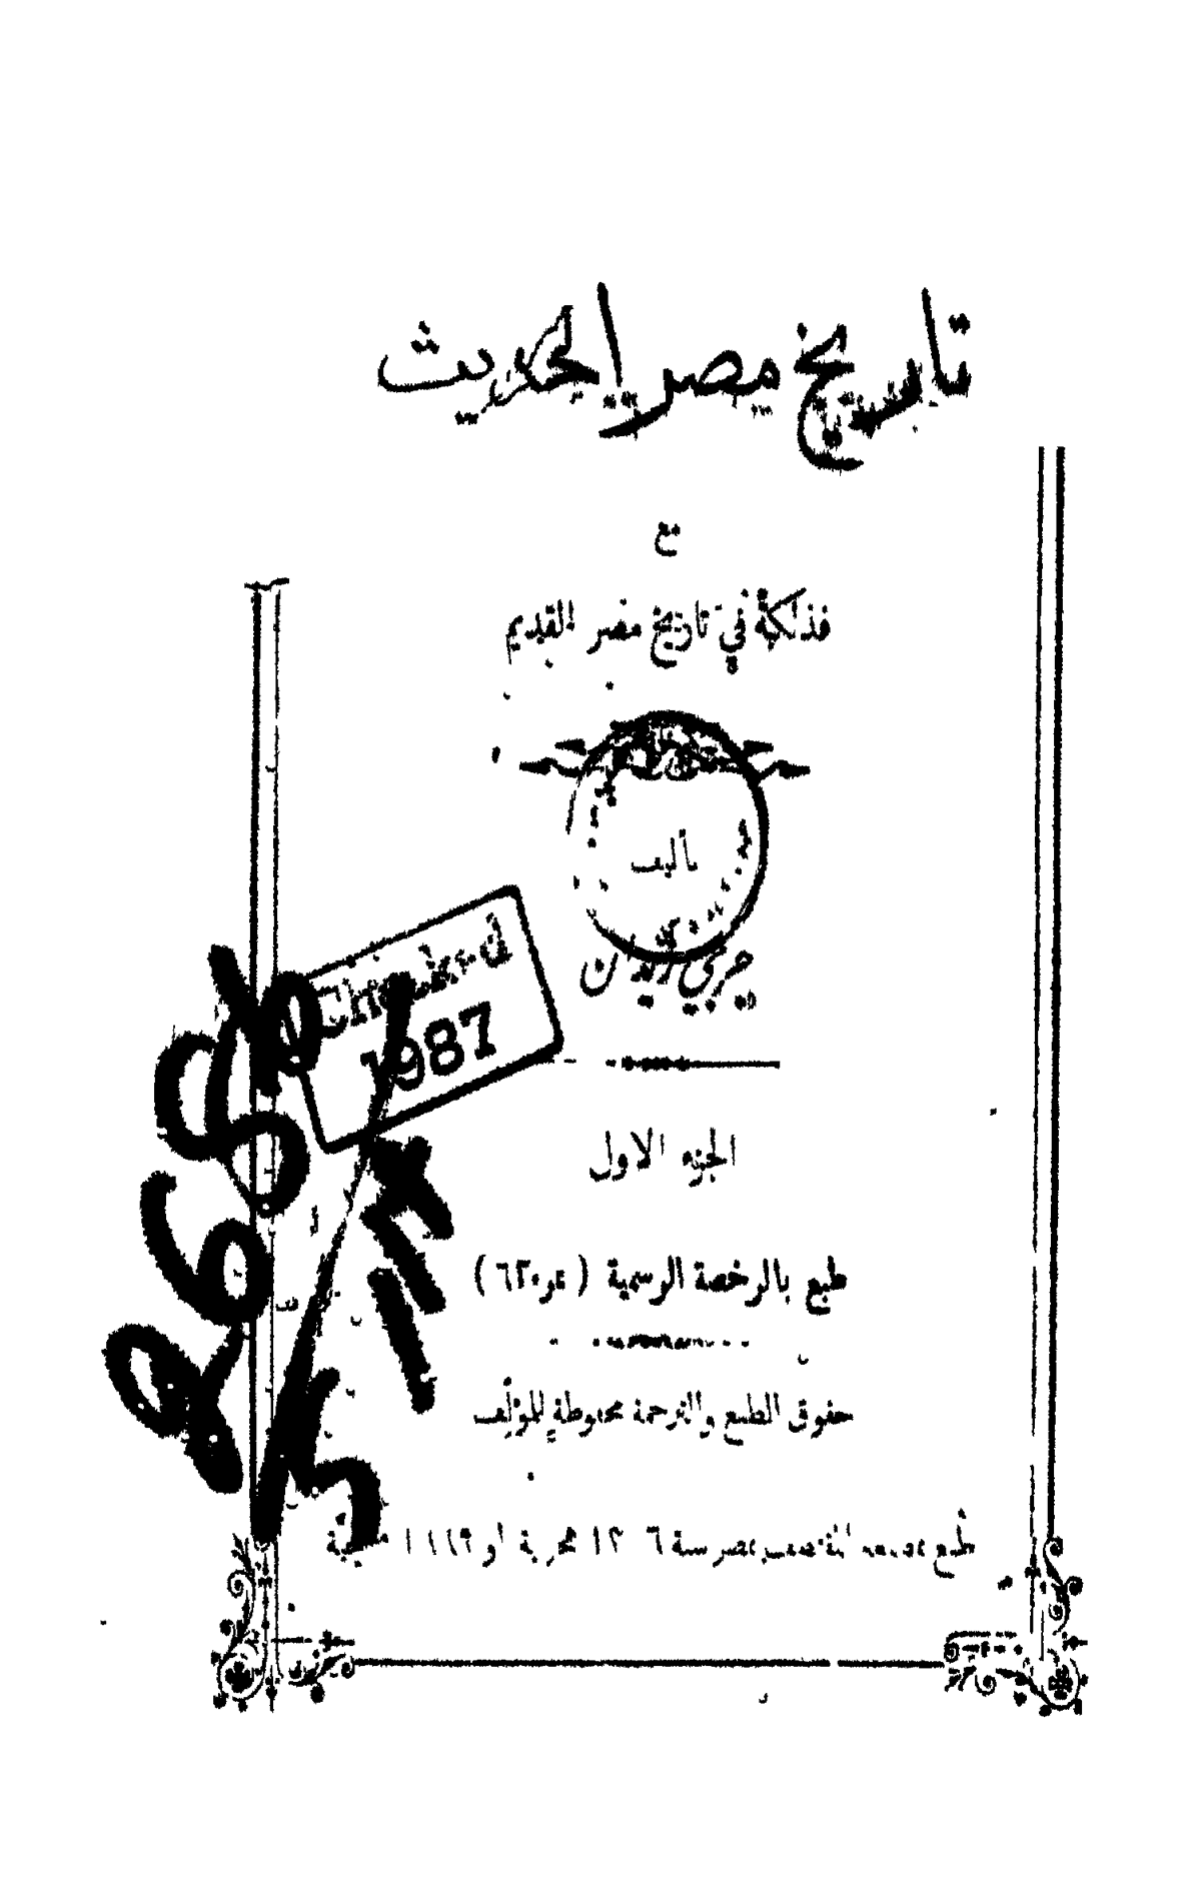 تاريخ مصر الحديث
مع
فذلكة في تاريخ مصر القديم
تأليف
جرجي زيدان
1987
الجزء الاول
طبع بالرخصة الرسمية ( نمرو ٦٣٠ )
حقوق الطبع والترجمة محفوظة للمؤلف
طبع بمصر سنة ١٣٠٦ هجرية او ١٨٨٩ مسيحية